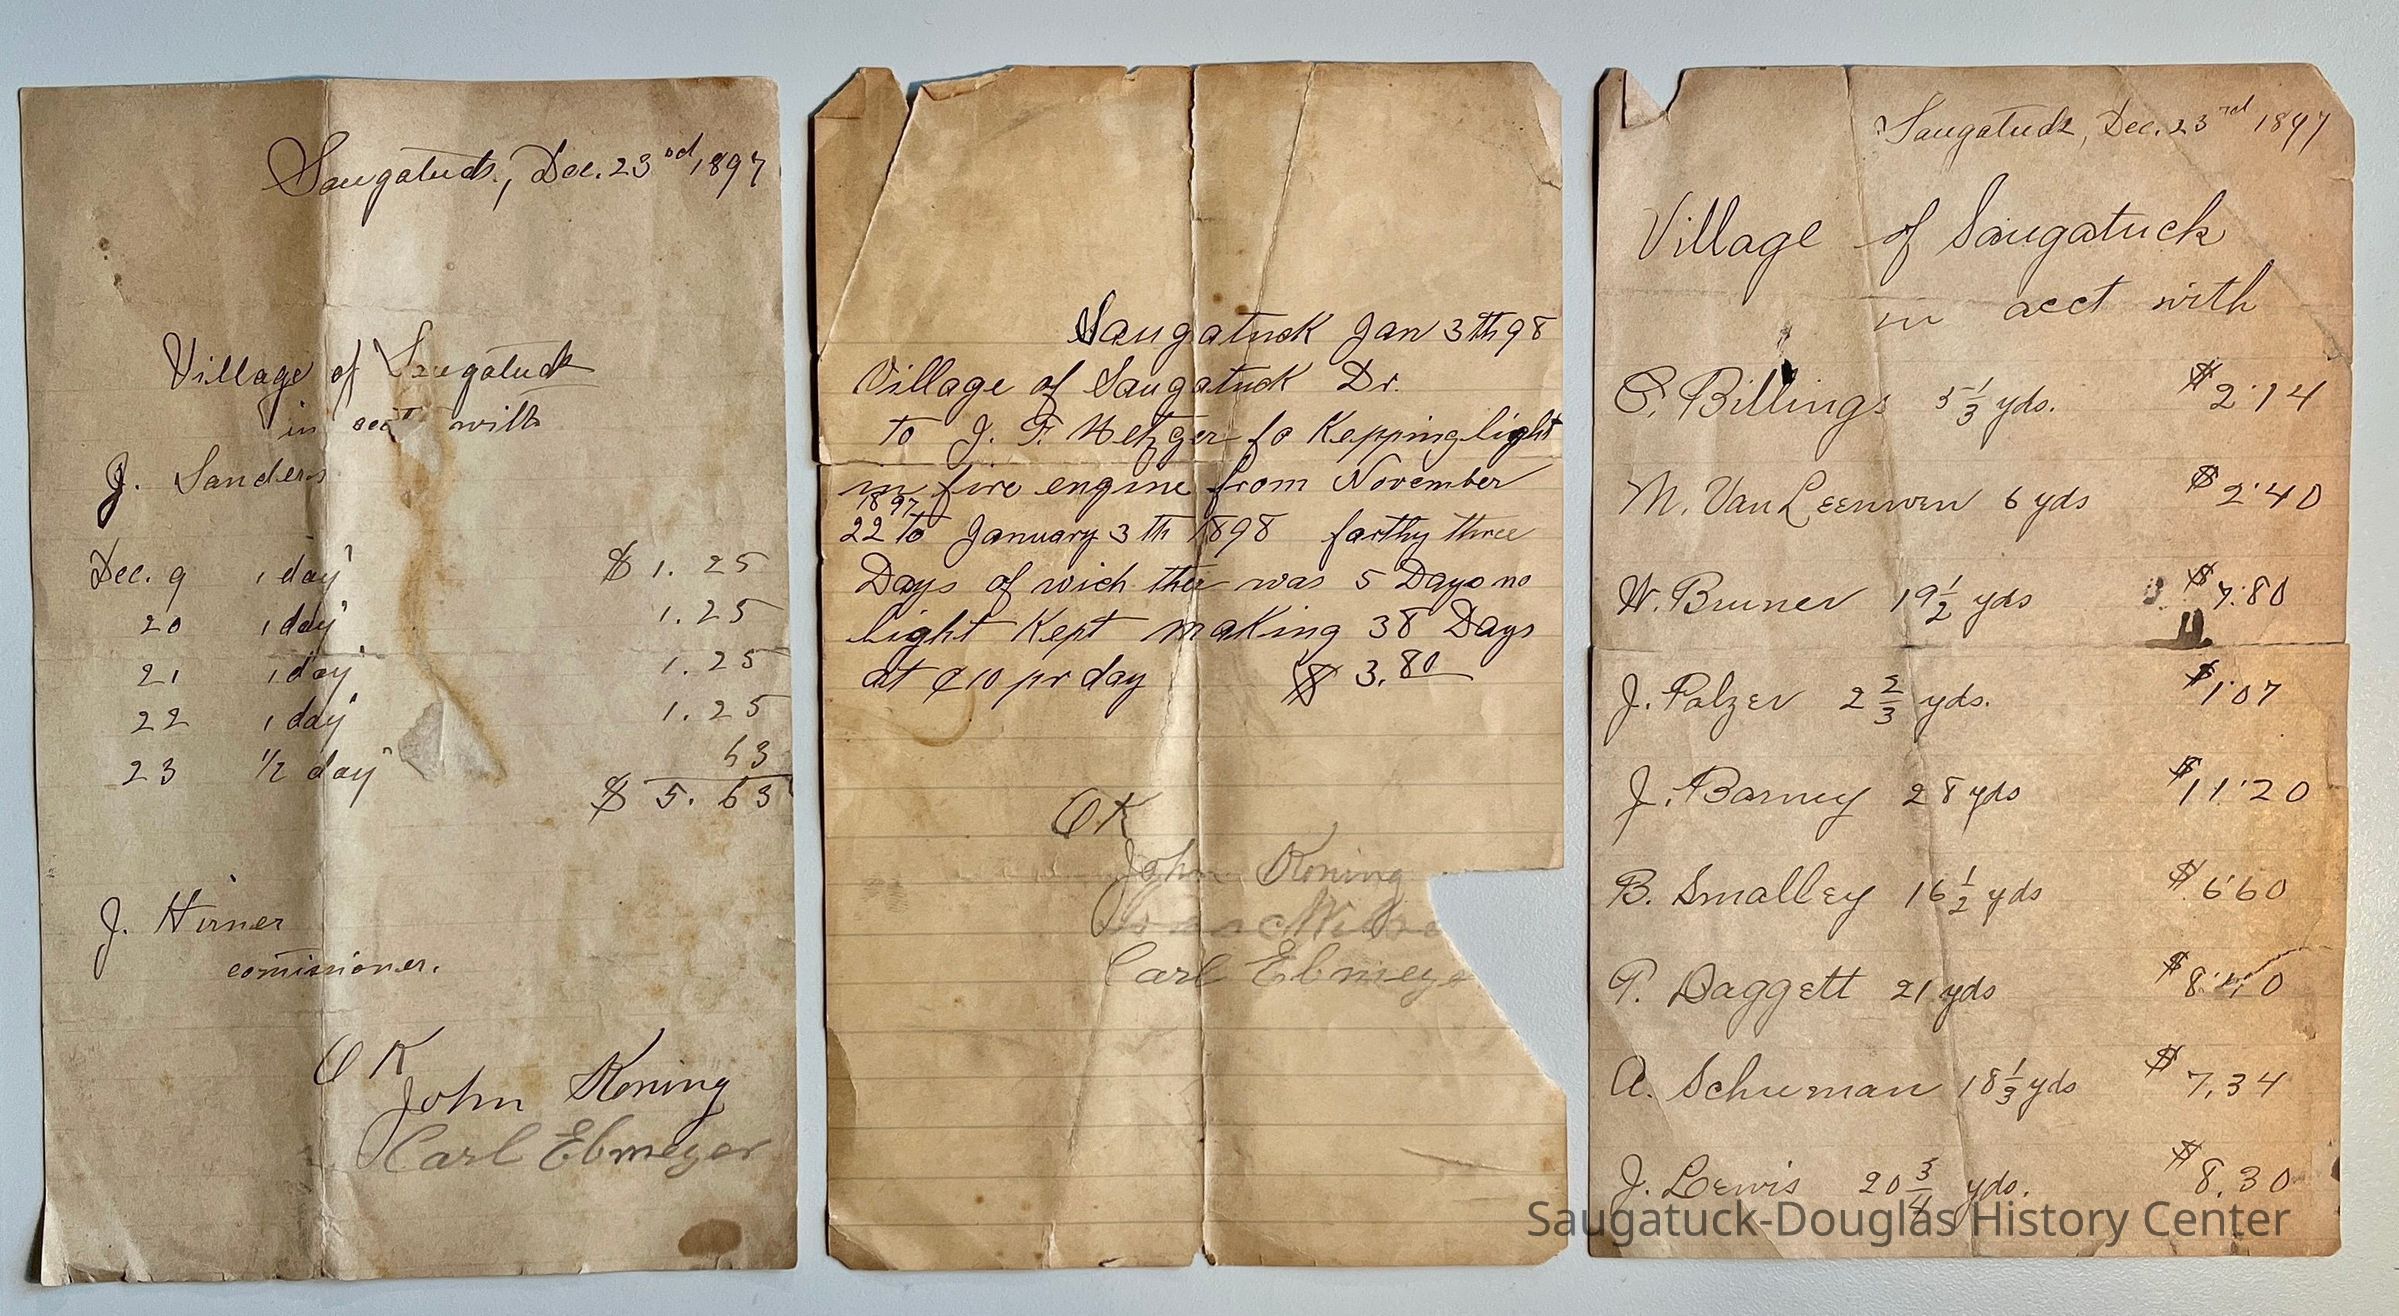 Saugatuck, Dec. 23rd, 1897
Village of Saugatuck
in acct with
J. Sanders
Dec. 9 1 day" $ 1.25
20 1 day" 1.25
21 1 day" 1.25
22 1 day" 1.25
23 1/2 day" 63
$ 5.63
J. Hirner
comissioner.
OK
John Koning
Carl Ebmeyer
Saugatuck Jan 3th 98
Village of Saugatuck Dr.
to J. F. Metzger fo Kepping light
in fire engine from November
1897
22 to January 3 th 1898 forthy three
Days of wich ther was 5 Days no
light Kept making 38 Days
at ¢10 pr day $ 3.80
OK
John Koning
Carl Ebmeye
Saugatuck, Dec. 23rd 1897
Village of Saugatuck
in acct with
C. Billings 5 1/3 yds. $2.14
M. Van Leenwen 6 yds $2.40
W. Bruner 19 1/2 yds $7.80
J. Palzer 2 2/3 yds. $1.07
J. Barney 28 yds $11.20
B. Smalley 16 1/2 yds $6.60
P. Daggett 21 yds $8.40
A. Schuman 18 1/3 yds $7.34
J. Lewis 20 3/4 yds. $8.30
Saugatuck-Douglas History Center